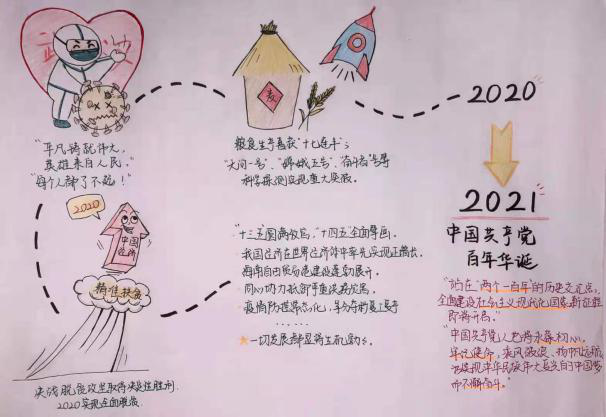 "平凡铸就伟大,
英雄来自人民。"
"每个人都了不起!"
粮食生产喜获"十七连丰";
"天问一号"、"嫦娥五号"、"奋斗者"号等
科学探测实现重大突破。
2020
2021
中国共产党
百年华诞
2020
中国
经济
精准扶贫
决战脱贫攻坚取得决定性胜利
2020实现全面脱贫
"十三五"圆满收官,"十四五"全面擘画。
我国经济在世界经济体中率先实现正增长。
海南自由贸易港建设蓬勃展开。
同心协力抵御严重洪涝灾害。
......
★一切发展都显得生机勃勃。
"站在"两个一百年"的历史交汇点,
全面建设社会主义现代化国家新征程
即将开启。"
"中国共产党人也将永葆初心,
牢记使命,乘风破浪、扬帆远航